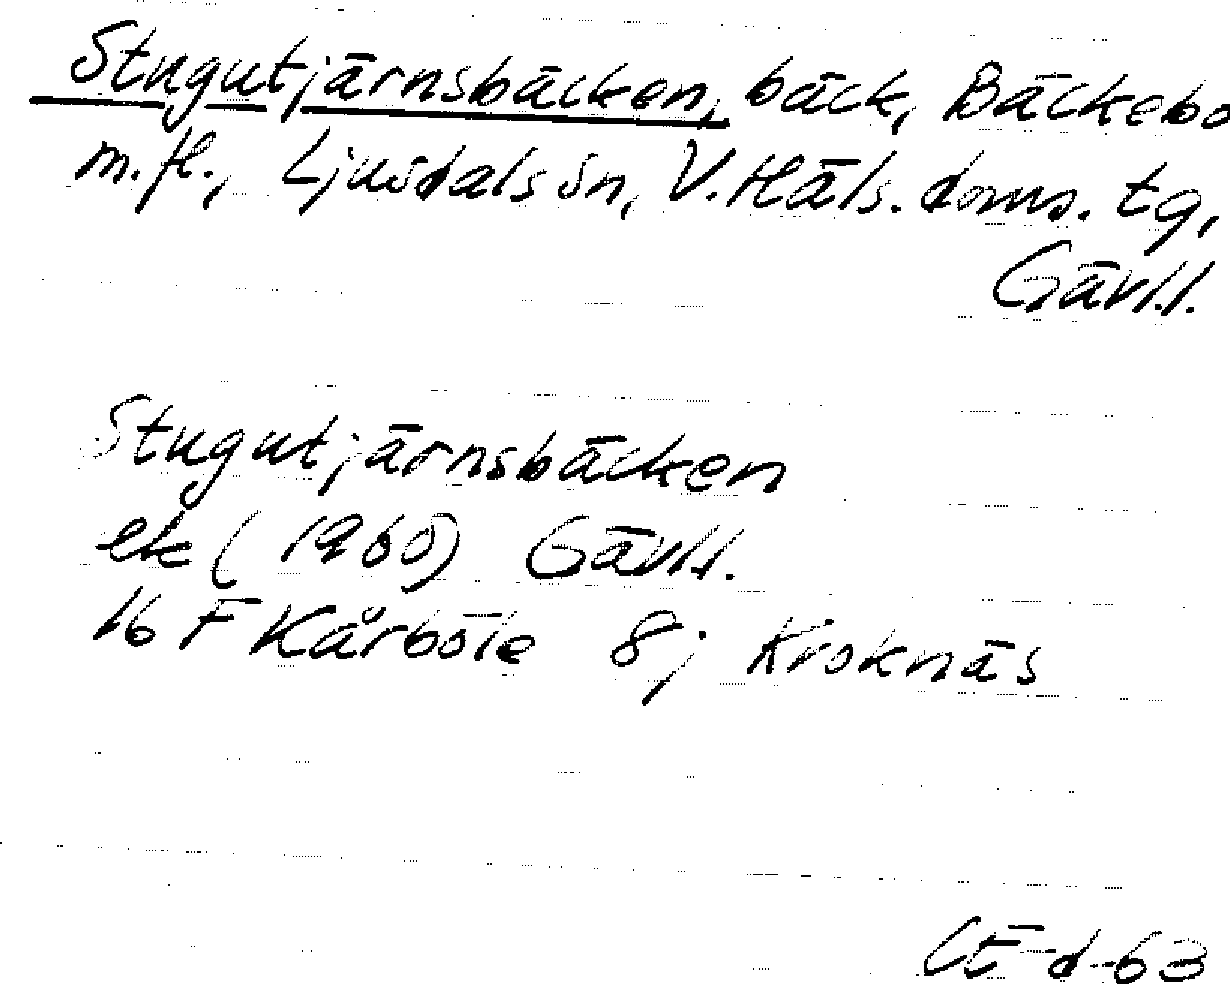 Stugutjärnsbäcken, bäck, Bäckebo
m.fl., Ljusdals sn, V. Häls. doms. tg,
Gävl.l.
Stugutjärnsbäcken
ek (1960) Gävl.l.
16 F Kårböle 8j Kroknäs
CE-d-63